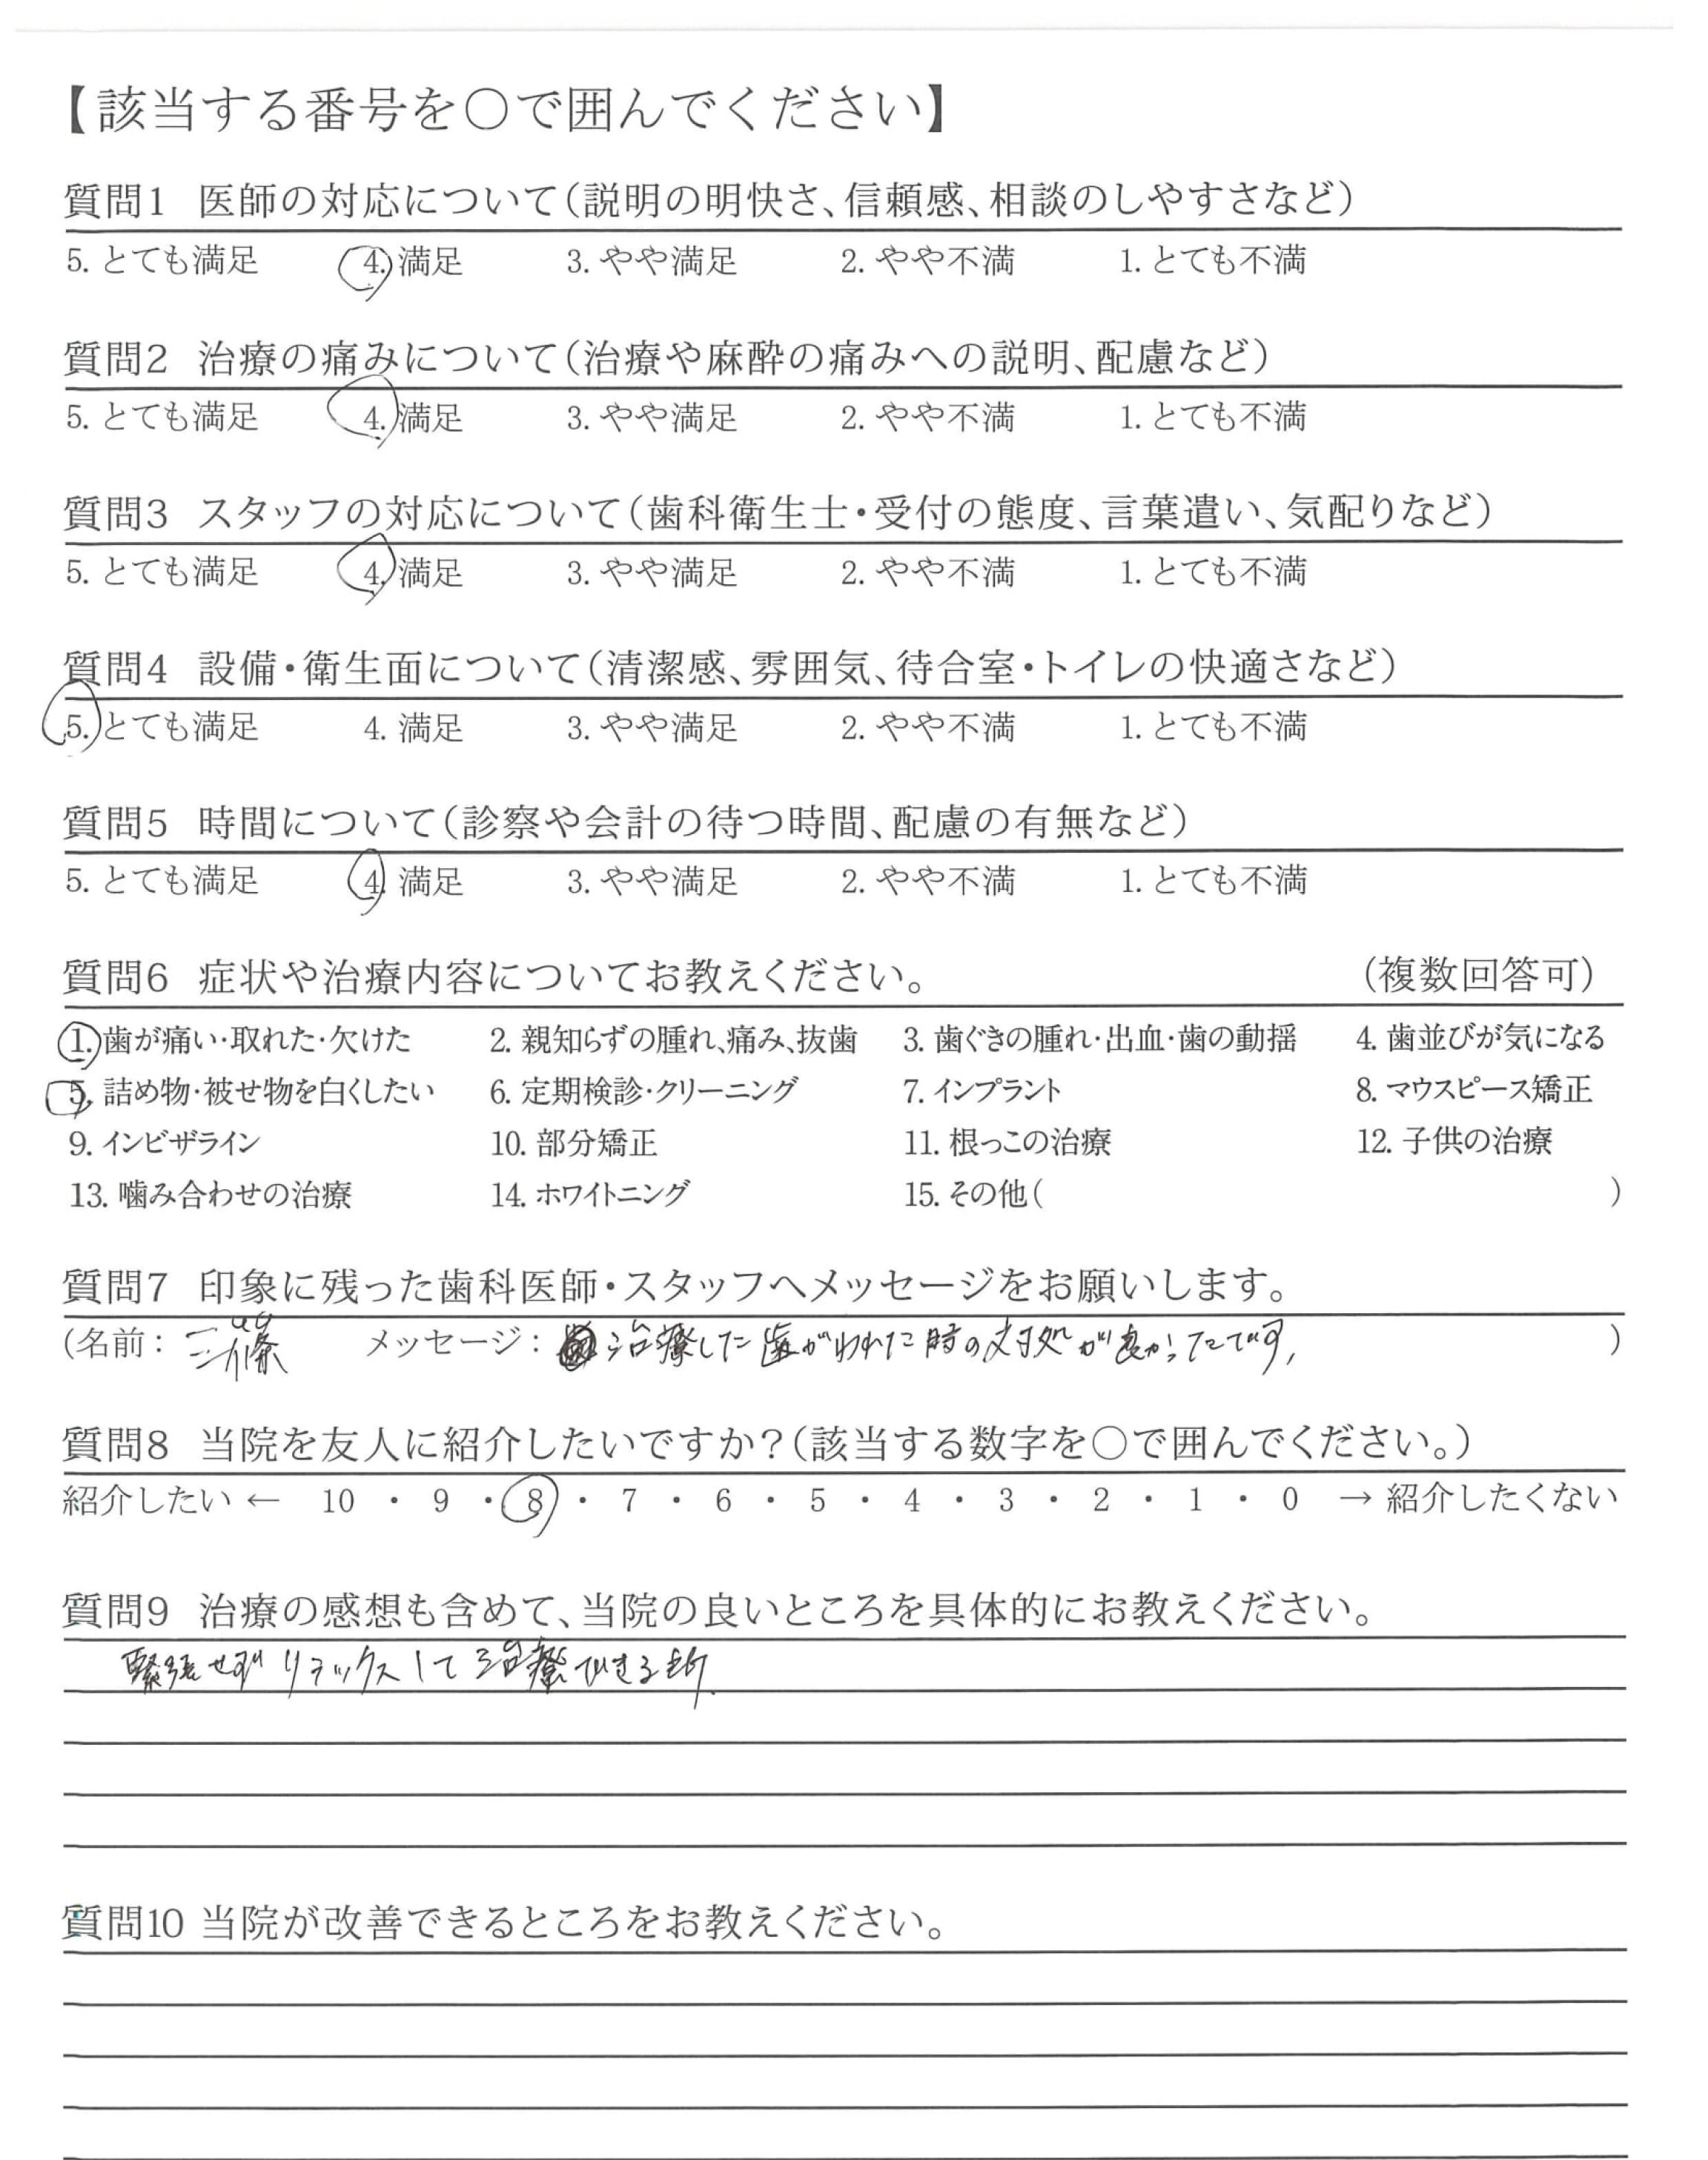 【該当する番号を○で囲んでください】
質問1 医師の対応について(説明の明快さ、信頼感、相談のしやすさなど)
5. とても満足 4. 満足 3. やや満足 2. やや不満 1. とても不満
質問2 治療の痛みについて(治療や麻酔の痛みへの説明、配慮など)
5. とても満足 4. 満足 3. やや満足 2. やや不満 1. とても不満
質問3 スタッフの対応について(歯科衛生士・受付の態度、言葉遣い、気配りなど)
5. とても満足 4. 満足 3. やや満足 2. やや不満 1. とても不満
質問4 設備・衛生面について(清潔感、雰囲気、待合室・トイレの快適さなど)
5. とても満足 4. 満足 3. やや満足 2. やや不満 1. とても不満
質問5 時間について(診察や会計の待つ時間、配慮の有無など)
5. とても満足 4. 満足 3. やや満足 2. やや不満 1. とても不満
質問6 症状や治療内容についてお教えください。 (複数回答可)
1. 歯が痛い・取れた・欠けた 2. 親知らずの腫れ、痛み、抜歯 3. 歯ぐきの腫れ・出血・歯の動揺 4. 歯並びが気になる
5. 詰め物・被せ物を白くしたい 6. 定期検診・クリーニング 7. インプラント 8. マウスピース矯正
9. インビザライン 10. 部分矯正 11. 根っこの治療 12. 子供の治療
13. 噛み合わせの治療 14. ホワイトニング 15. その他( )
質問7 印象に残った歯科医師・スタッフへメッセージをお願いします。
(名前: メッセージ: 治療した歯がわれた時の対処が良かったです, )
質問8 当院を友人に紹介したいですか?(該当する数字を○で囲んでください。)
紹介したい ← 10 ・ 9 ・ 8 ・ 7 ・ 6 ・ 5 ・ 4 ・ 3 ・ 2 ・ 1 ・ 0 → 紹介したくない
質問9 治療の感想も含めて、当院の良いところを具体的にお教えください。
緊張せずリラックスして治療できる所.
質問10 当院が改善できるところをお教えください。